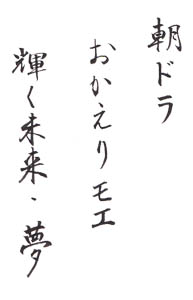 朝ドラ
おかえりモエ
輝く未来・夢